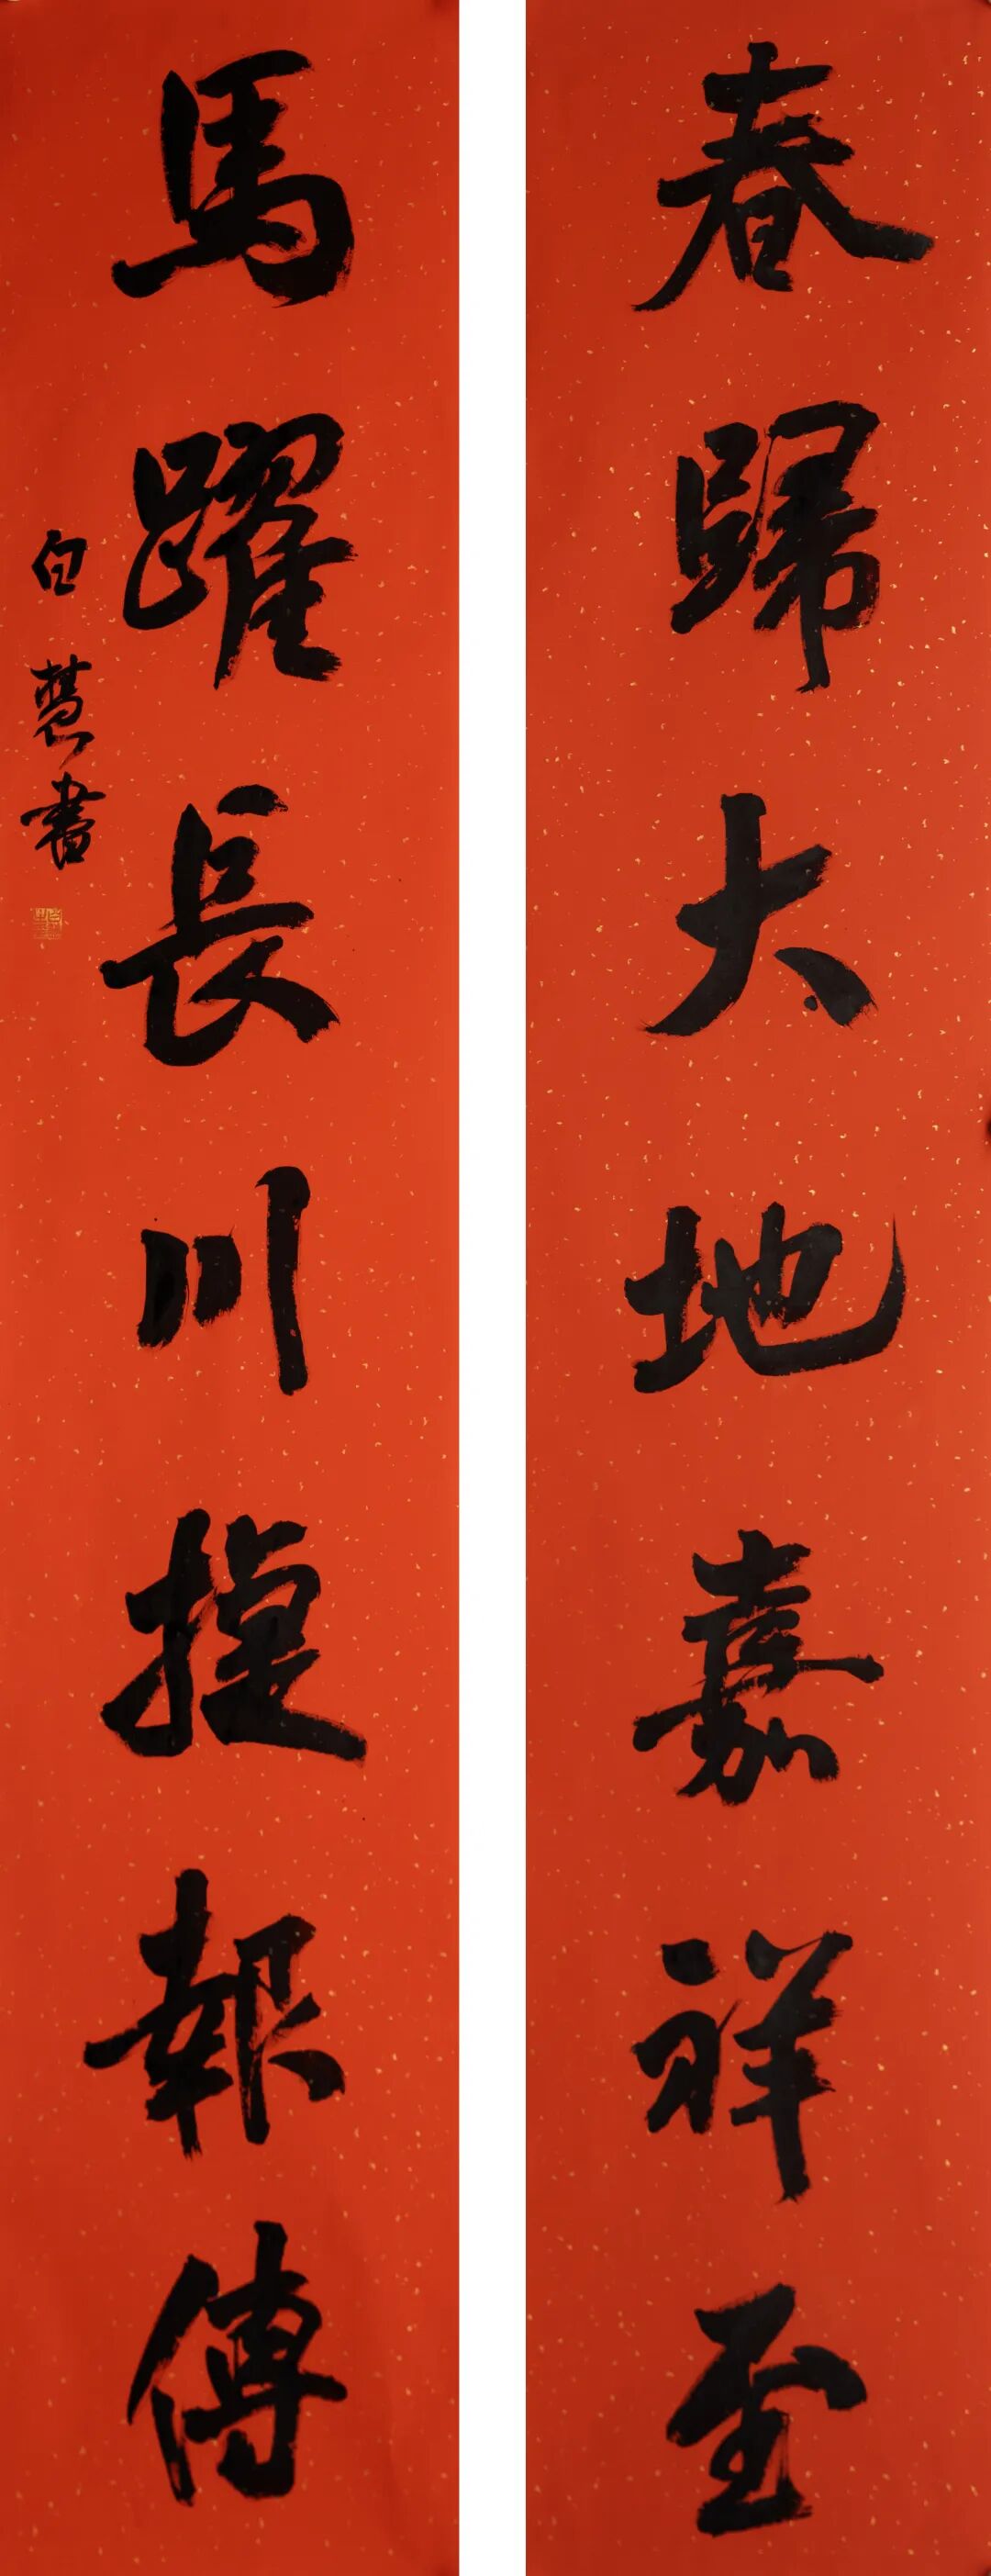 春歸大地嘉祥至
馬躍長川捷報傳
白慧書